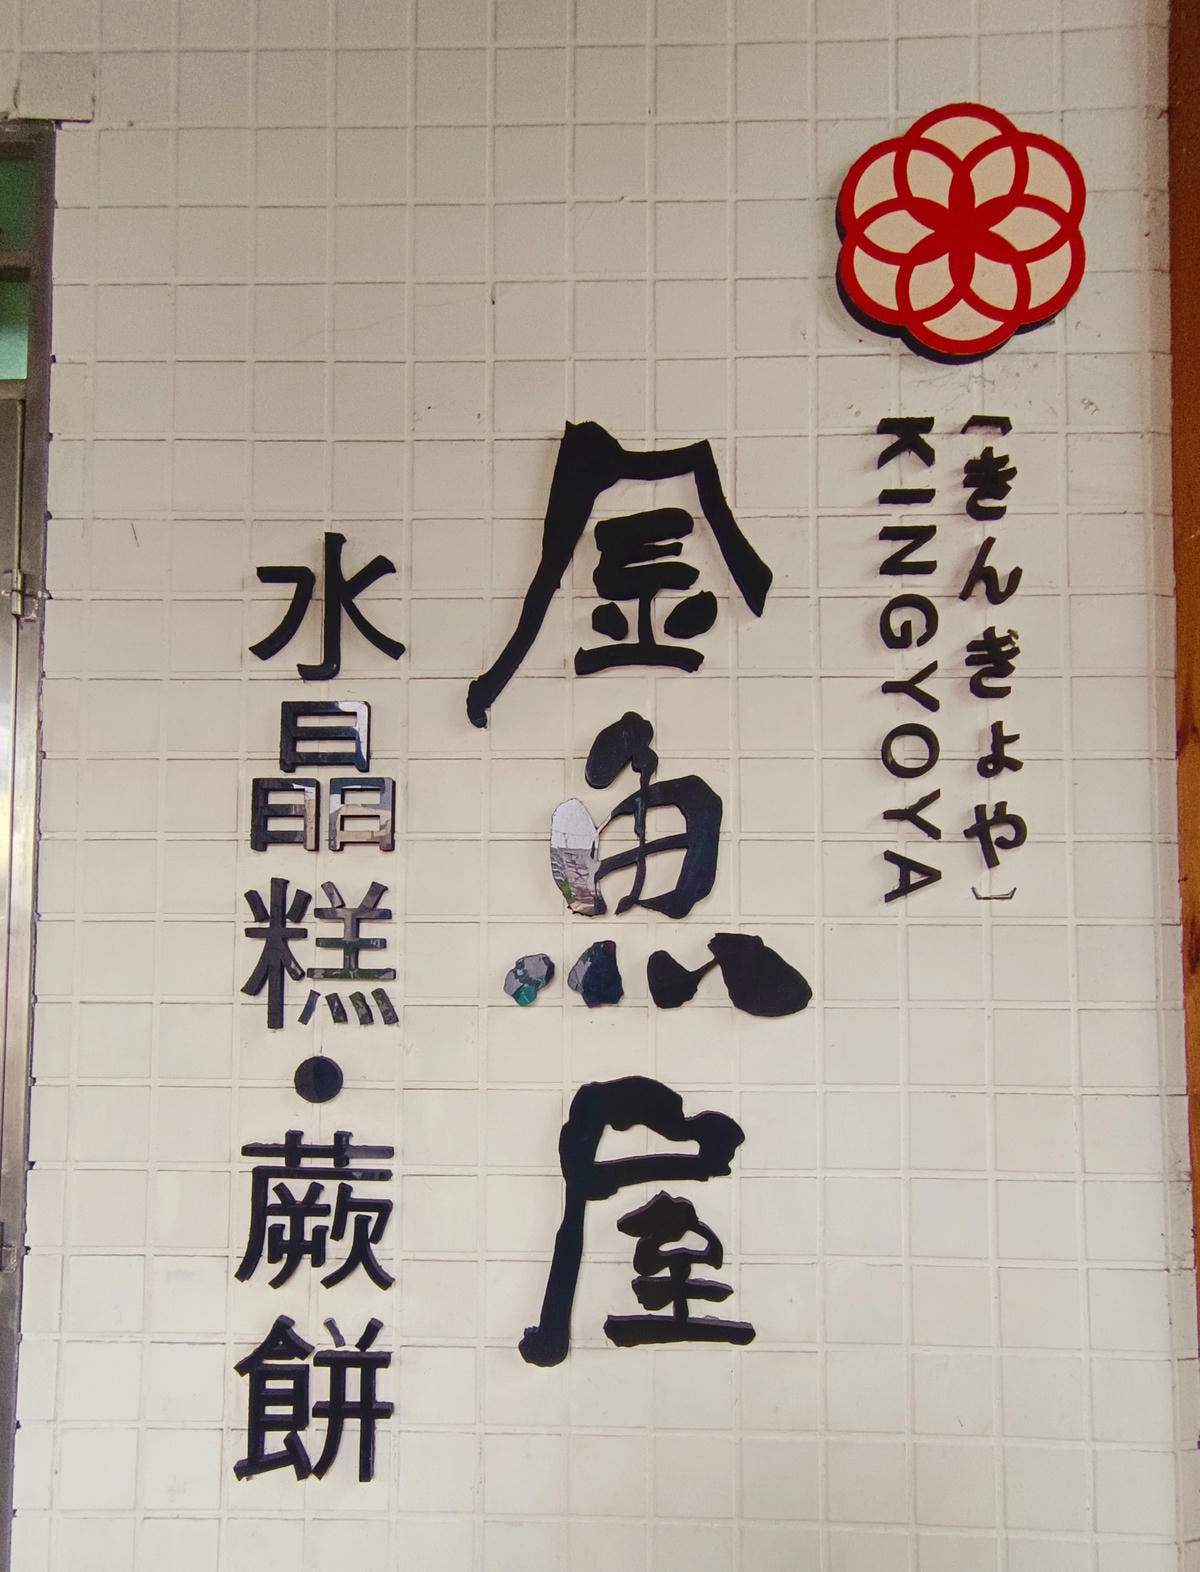 ［きんぎょや］
KINGYOYA
金魚屋
水晶糕・蕨餅